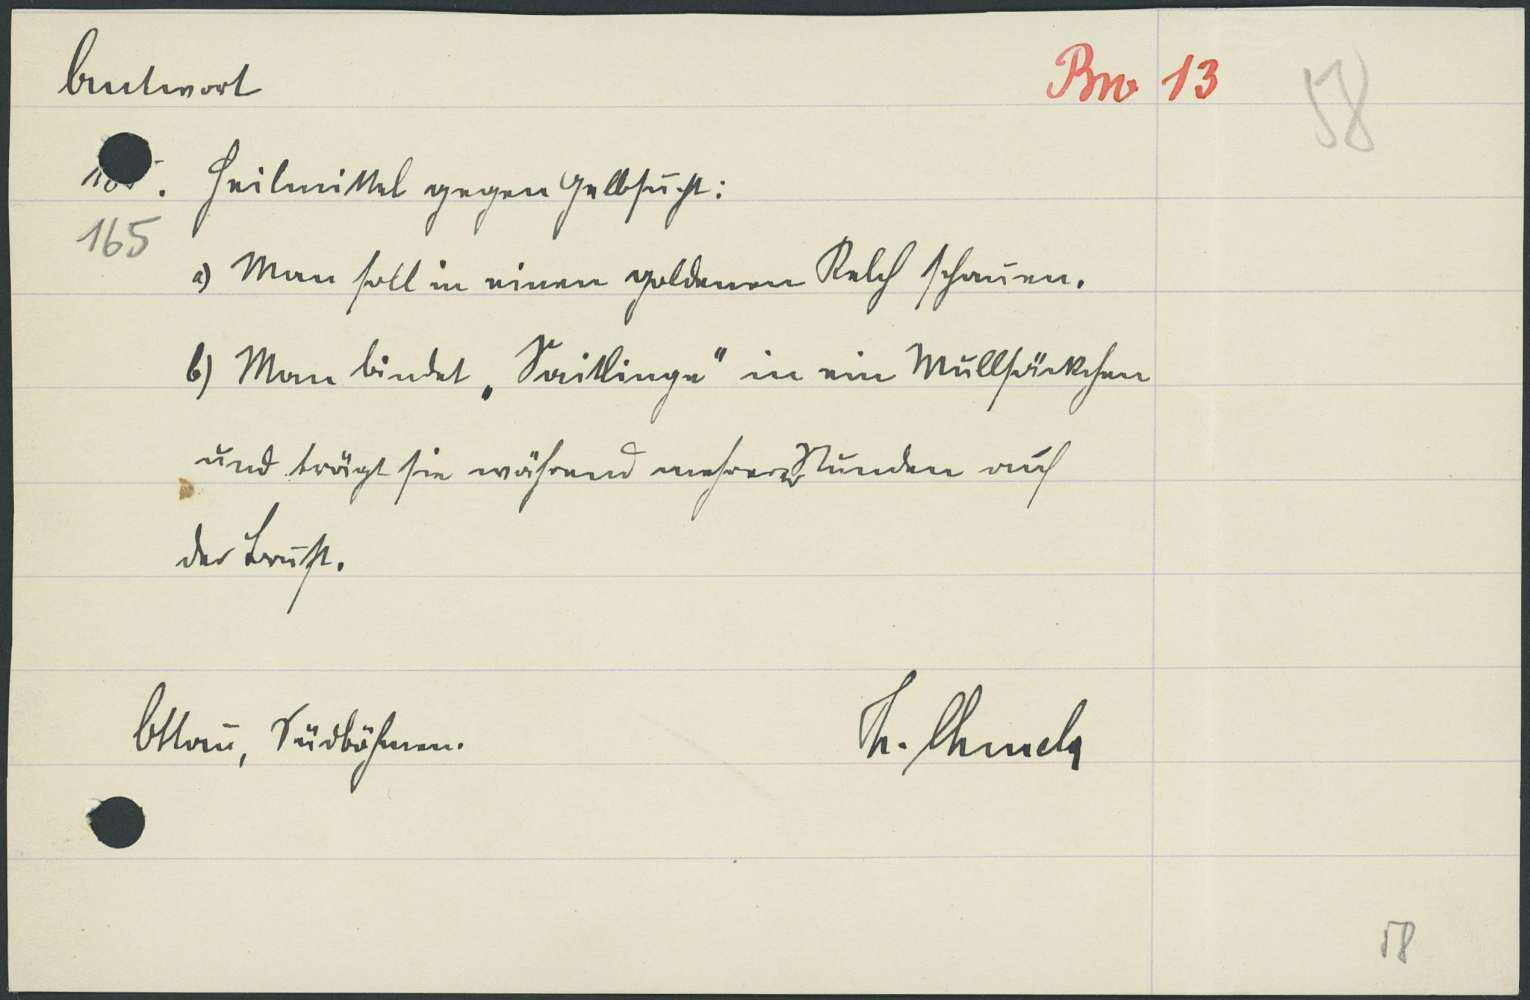 Antwort Bm 13 58
165. Heilmittel gegen Gelbsucht:
165
a) Man soll in einen goldenen Kelch schauen.
b) Man bindet „Saitlinge" in ein Mullsäckchen
und trägt sie während mehrerer Stunden auf
der Brust.
Ottau, Südböhmen. Th. Chmela
58